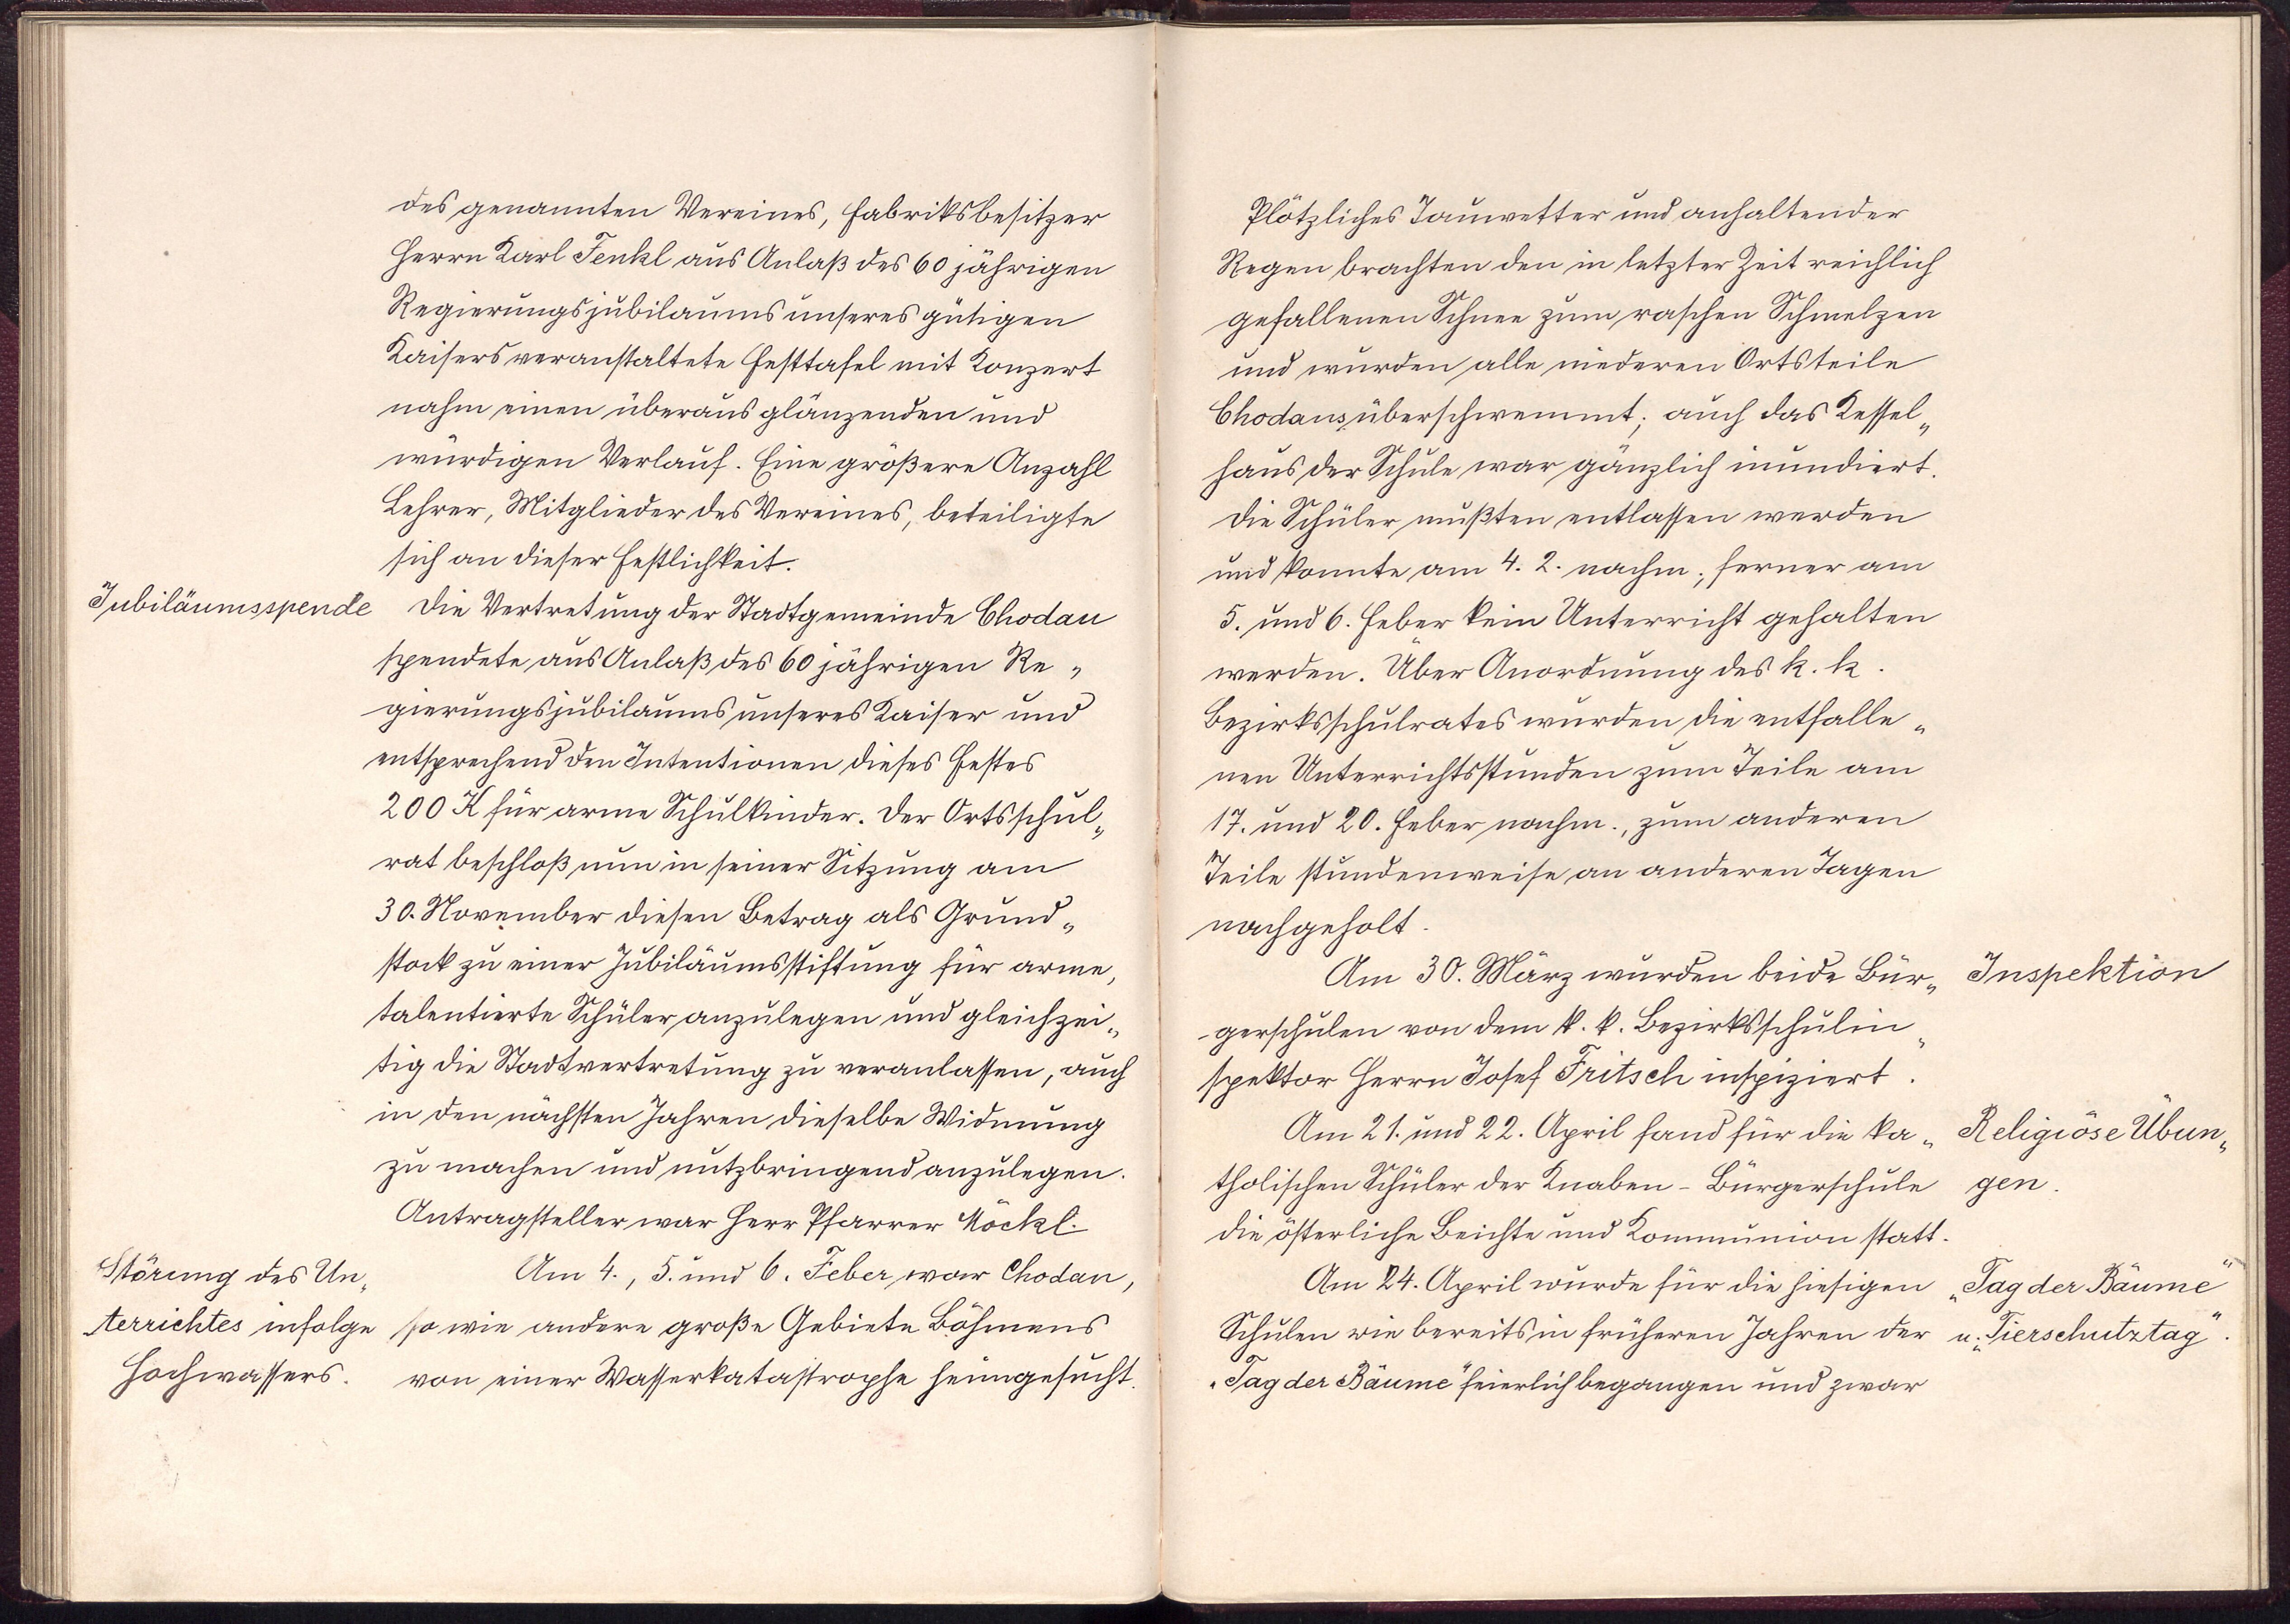 des genannten Vereines, Fabriksbesitzer
Herrn Karl Fenkl aus Anlaß des 60 jährigen
Regierungsjubilaums unseres gütigen
Kaisers veranstaltete Festtafel mit Konzert
nahm einen überaus glänzenden und
würdigen Verlauf. Eine größere Anzahl
Lehrer, Mitglieder des Vereines, beteiligte
sich an dieser Festlichkeit.
Jubiläumsspende
Die Vertretung der Stadtgemeinde Chodau
spendete aus Anlaß des 60 jährigen Re„
gierungsjubilaums unseres Kaiser und
entsprechend den Intentionen dieses Festes
200 K für arme Schulkinder. Der Ortsschul„
rat beschloß nun in seiner Sitzung am
30. November diesen Betrag als Grund„
stock zu einer Jubiläumsstiftung für arme,
talentierte Schüler anzulegen und gleichzei„
tig die Stadtvertretung zu veranlassen, auch
in den nächsten Jahren dieselbe Widmung
zu machen und nutzbringend anzulegen.
Antragsteller war Herr Pfarrer Möckl.
Störung des Un„
terrichtes infolge
Hochwassers.
Am 4., 5. und 6. Feber war Chodau,
so wie andere große Gebiete Böhmens
von einer Wasserkatastrophe heimgesucht.
Plötzliches Tauwetter und anhaltender
Regen brachten den in letzter Zeit reichlich
gefallenen Schnee zum raschen Schmelzen
und wurden alle niederen Ortsteile
Chodaus überschwemmt; auch das Kessel„
haus der Schule war gänzlich inundiert.
Die Schüler mußten entlassen werden
und konnte am 4. 2. nachm., ferner am
5. und 6. Feber kein Unterricht gehalten
werden. Über Anordnung des k. k.
Bezirksschulrates wurden die entfalle„
nen Unterrichtsstunden zum Teile am
17. und 20. Feber nachm., zum anderen
Teile stundenweise an anderen Tagen
nachgeholt.
Am 30. März wurden beide Bür„
gerschulen von dem k. k. Bezirksschulin„
spektor Herrn Josef Fritsch inspiziert.
Inspektion
Am 21. und 22. April fand für die ka„
tholischen Schüler der Knaben-Bürgerschule
die österliche Beichte und Kommunion statt.
Religiöse Übun„
gen.
Am 24. April wurde für die hiesigen
Schulen wie bereits in früheren Jahren der
„Tag der Bäume“ feierlich begangen und zwar
„Tag der Bäume“
u. „Tierschutztag“.